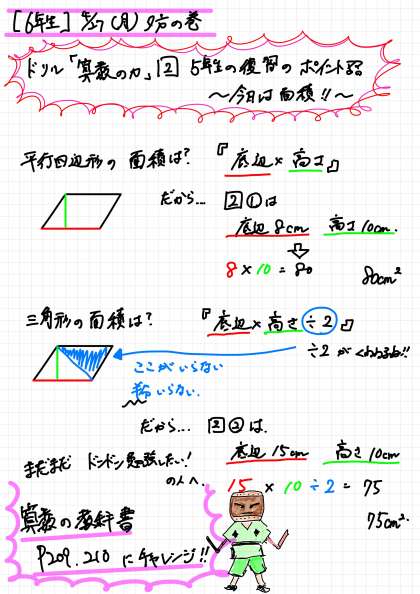 [6年生] 4/27(月)夕方の巻
ドリル「算数の力」2 5年生の復習のポイント
〜今日は面積!!〜
平行四辺形の面積は? 『底辺×高さ』
だから... 2①は
底辺8cm 高さ10cm.
8×10=80 80cm²
三角形の面積は? 『底辺×高さ÷2』
÷2がくわわるね!!
ここがいらない
いらない.
だから... 2②は.
底辺15cm 高さ10cm
まだまだドンドン勉強したい!
の人へ.
15×10÷2=75
75cm²
算数の教科書
P209.210にチャレンジ!!